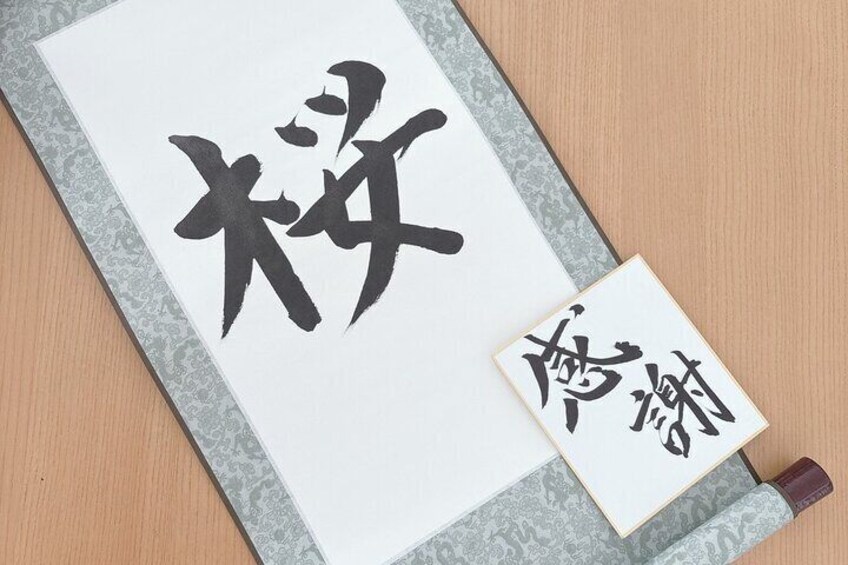 桜
感謝